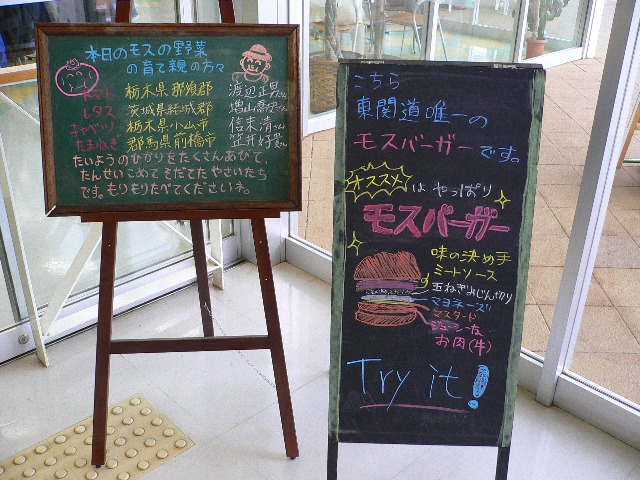 本日のモスの野菜
の育て親の方々
トマト 栃木県那須郡 渡辺正男さん
レタス 茨城県結城郡
キャベツ 栃木県小山市 信末清さん
たまねぎ 郡馬県前橋市
たいようのひかりをたくさんあびて、
たんせいこめてそだてたやさいたち
です。もりもりたべてくださいネ。
こちら
東関道唯一の
モスバーガーです。
オススメは やっぱり
モスバーガー
味の決め手
ミートソース
玉ねぎみじん切り
マヌネーズ
マスタード
ジューシーな
お肉(牛)
Try it!